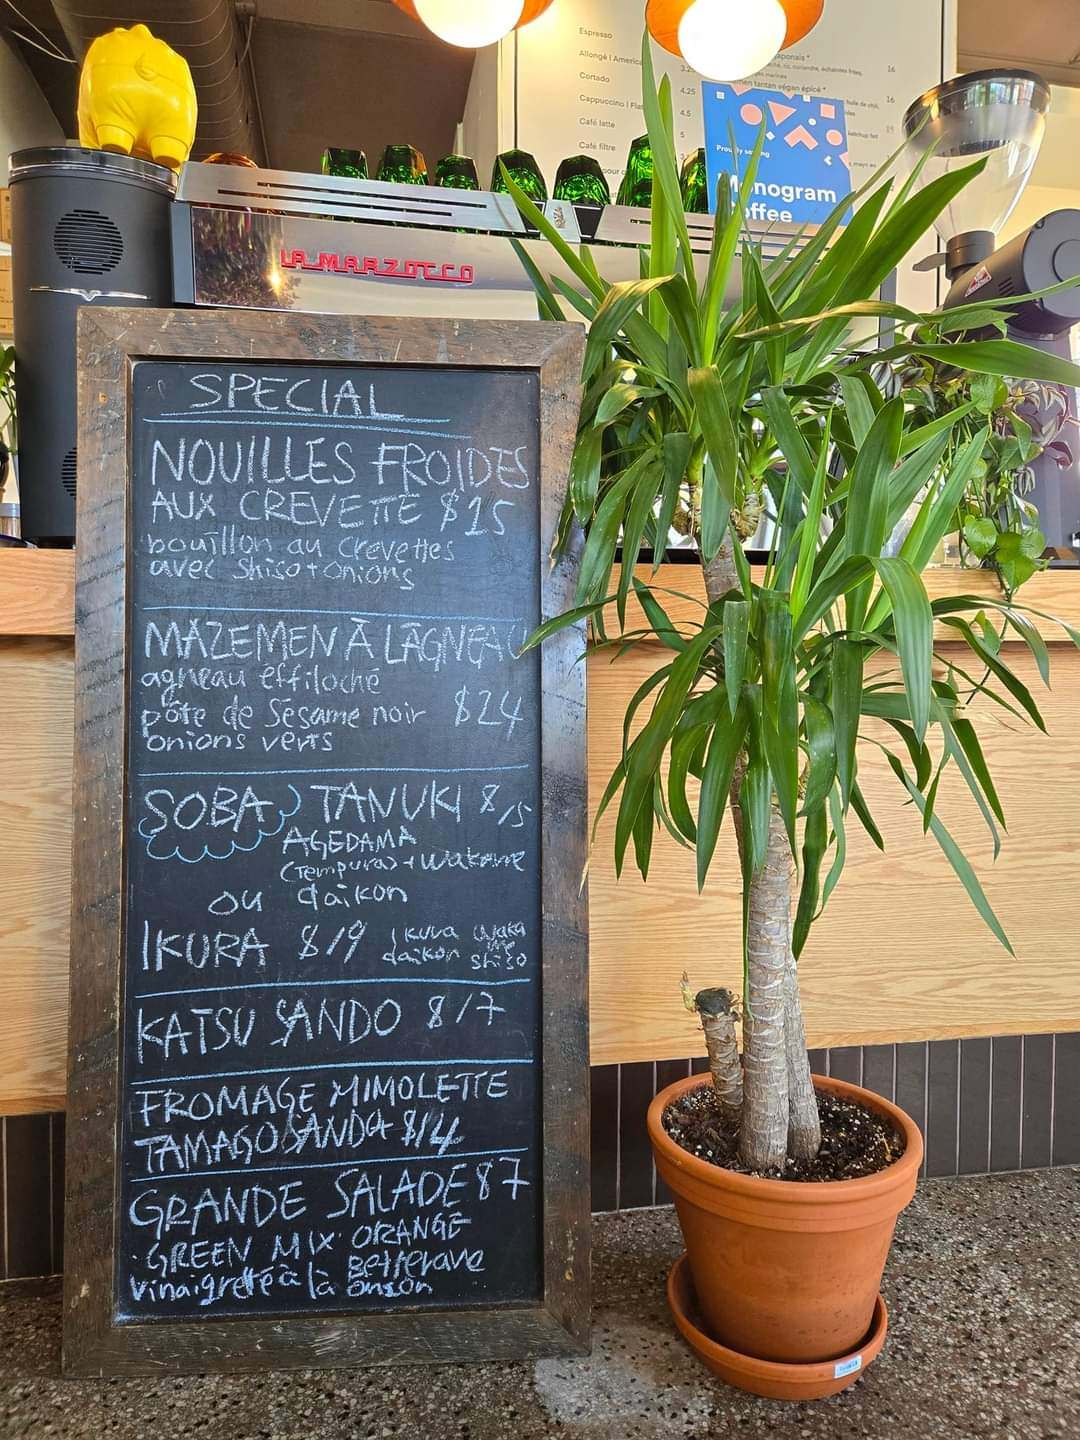 Espresso
Allongé | America
3.25
Cortado
4.25
Cappuccino | Flat
4.5
Café latte
5
Café filtre
japonais *
16
tantan végan épicé *
16
Proudly serving
Monogram
Coffee
LA MARZOCCO
SPECIAL
NOUILLES FROIDES
AUX CREVETTE $15
bouillon au crevettes
avec shiso + onions
MAZEMEN À LAGNEAU
agneau effiloché
pâte de sésame noir $24
onions verts
SOBA TANUKI $15
AGEDAMA
(Tempura) + wakame
daikon
ou
IKURA $19 Ikura waka
me
daikon shiso
KATSU SANDO $17
FROMAGE MIMOLETTE
TAMAGO SANDO $14
GRANDE SALADE $7
GREEN MIX ORANGE
Betterave
vinaigrette à la onion